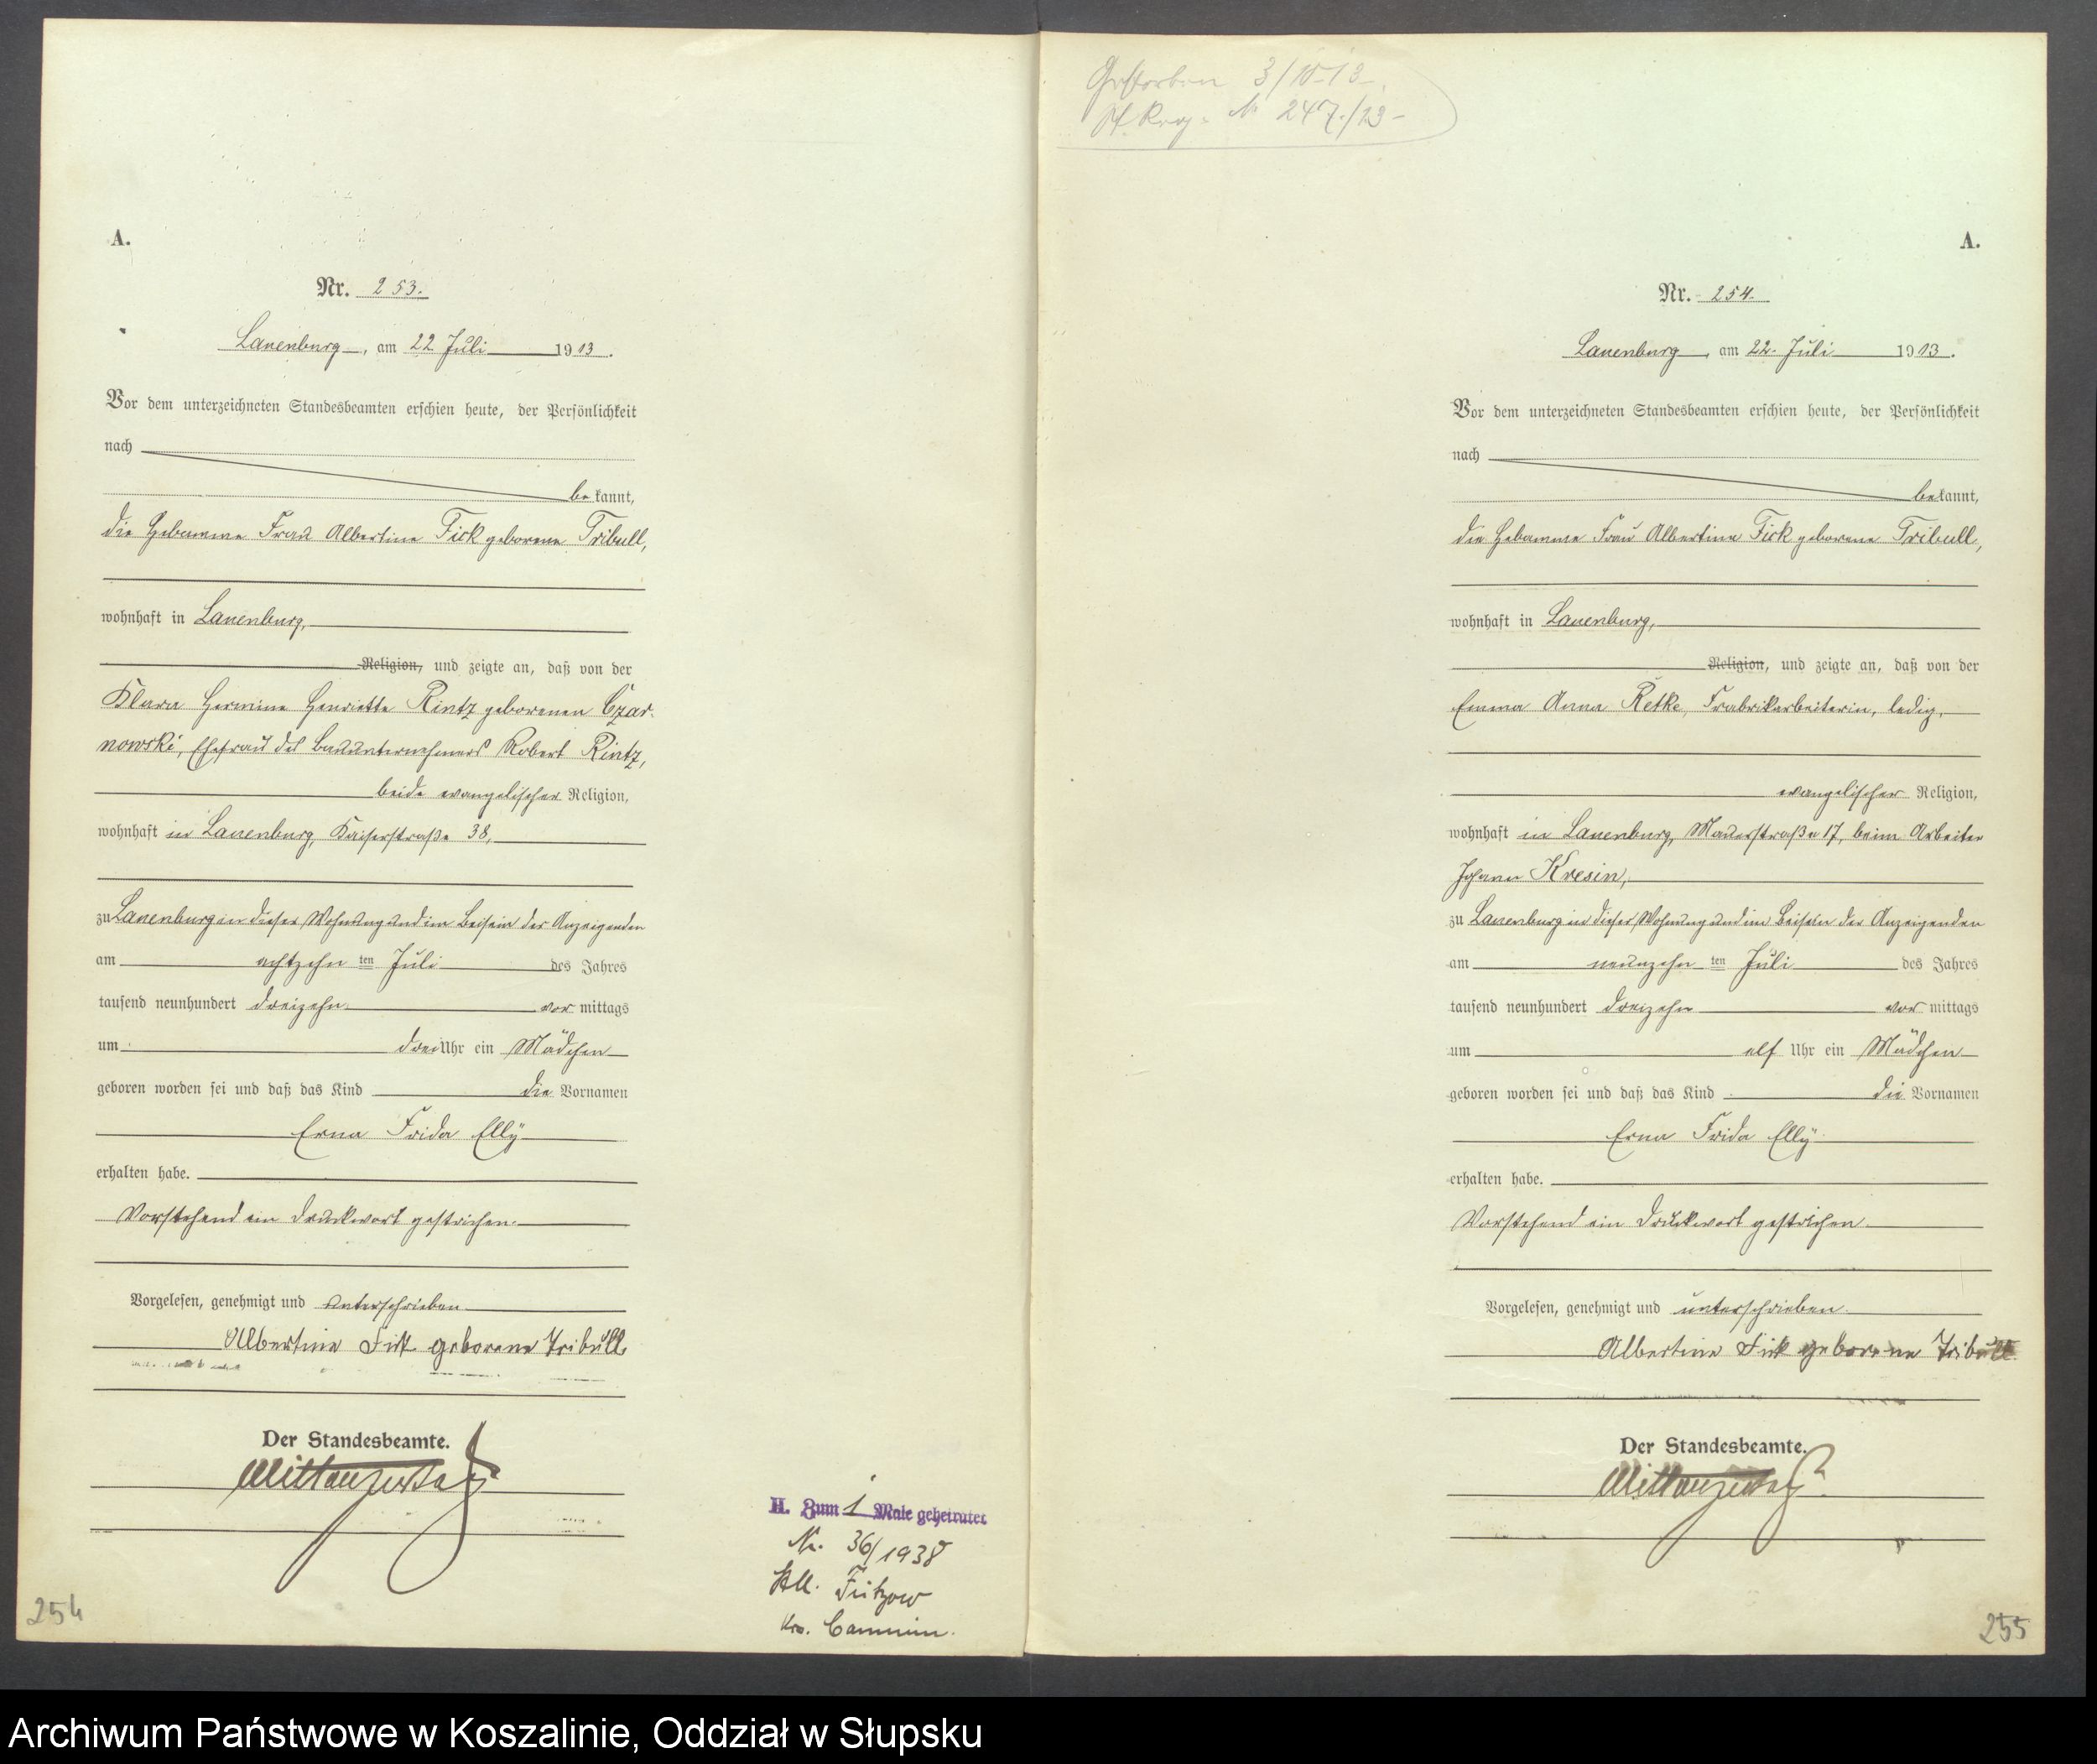 A.
Nr. 253.
Lauenburg, am 22 Juli 1913.
Vor dem unterzeichneten Standesbeamten erschien heute, der Persönlichkeit
nach
bekannt,
die Hebamme Frau Albertine Fick geborene Tribull,
wohnhaft in Lauenburg,
Religion, und zeigte an, daß von der
Klara Hermine Henriette Rintz geborenen Czar-
nowski, Ehefrau des Bauunternehmers Robert Rintz,
beide evangelischer Religion,
wohnhaft in Lauenburg, Kaiserstraße 38,
zu Lauenburg in dieser Wohnung und im Beisein der Anzeigenden
am achtzehn ten Juli des Jahres
tausend neunhundert dreizehn vor mittags
um drei Uhr ein Mädchen
geboren worden sei und daß das Kind die Vornamen
Erna Frida Elly
erhalten habe.
Vorstehend ein Druckwort gestrichen.
Vorgelesen, genehmigt und unterschrieben
Albertine Fick geborene Tribull.
Der Standesbeamte.
H. Zum 1 Male geheiratet
Nr. 36/1938
StA. Fritzow
Krs. Cammin.
254
Gestorben 3/10 13.
St. Reg. № 247./13
A.
Nr. 254.
Lauenburg, am 22. Juli 1913.
Vor dem unterzeichneten Standesbeamten erschien heute, der Persönlichkeit
nach
bekannt,
die Hebamme Frau Albertine Fick geborene Tribull,
wohnhaft in Lauenburg,
Religion, und zeigte an, daß von der
Emma Anna Retke, Frabrikarbeiterin, ledig,
evangelischer Religion,
wohnhaft in Lauenburg, Mauerstraße 17, beim Arbeiter
Johann Kresin,
zu Lauenburg in dieser Wohnung und im Beisein der Anzeigenden
am neunzehn ten Juli des Jahres
tausend neunhundert dreizehn vor mittags
um elf Uhr ein Mädchen
geboren worden sei und daß das Kind die Vornamen
Erna Frida Elly
erhalten habe.
Vorstehend ein Druckwort gestrichen.
Vorgelesen, genehmigt und unterschrieben.
Albertine Fick geborene Tribull
Der Standesbeamte.
255
Archiwum Państwowe w Koszalinie, Oddział w Słupsku